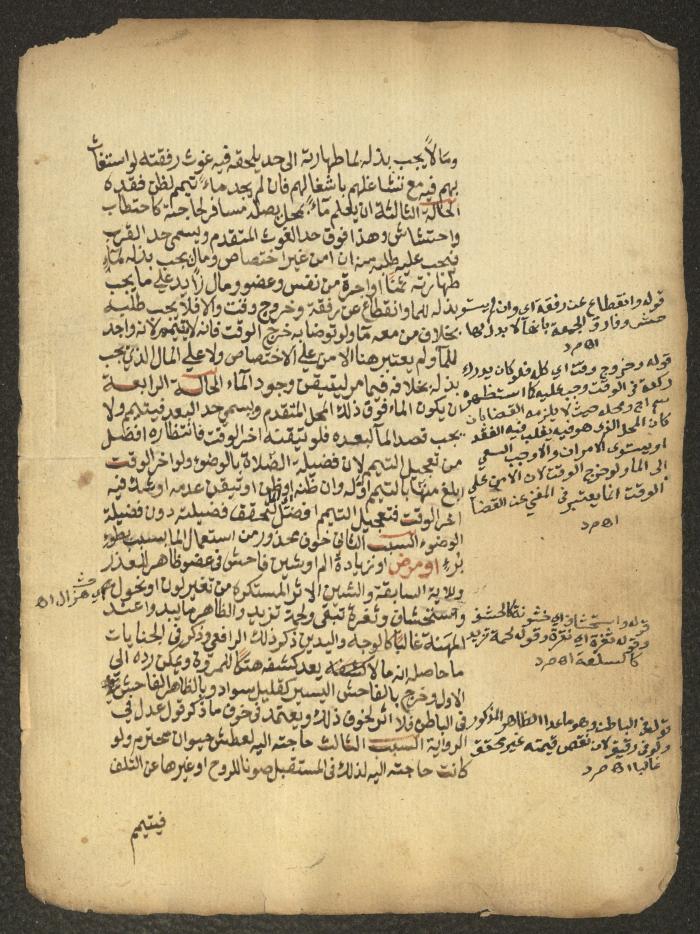 ومالا يجب بذله لماطهارته الى حد يلحقه فيه غوث رفقته لو استغاث
بهم فيه مع تشاغلهم باشغالهم فان لم يجد ماء تيمم لظن فقده
الحالة الثالثة ان يعلم ماء بمحل يصله مسافر لحاجته كاحتطاب
واحتشاش وهذا فوق حد الغوث المتقدم ويسمى حد القرب
فيجب عليه طلبه منه ان امن غير اختصاص ومال يجب بذله لماء
طهارته ثمنا او اجرة من نفس وعضو ومال زايد على ما يجب
بذله للما وانقطاع عن رفقة وخروج وقت والا فلا يجب طلبه
بخلاف من معه ما ولو توضا به خرج الوقت فانه لا يتيمم لانه واجد
للما ولم يعتبر هنا الامن على الاختصاص ولا على المال الذي يجب
بذله بخلافه فيما مر لتيقن وجود الماء الحالة الرابعة
ان يكون الماء فوق ذلك المحل المتقدم ويسمى حد البعد فيتيمم ولا
يجب قصد الما لبعده فلو تيقنه اخر الوقت فانتظاره افضل
من تعجيل التيمم لان فضيلة الصلاة بالوضوء ولو اخر الوقت
ابلغ منها بالتيمم اوله وان ظنه او ظن او تيقن عدمه او شك فيه
اخر الوقت فتعجيل التيمم افضل لتحقق فضيلته دون فضيلة
الوضوء السبب الثاني خوف محذور من استعمال الما بسبب بطوء
برء او مرض او زيادة الم او شين فاحش في عضو ظاهر للعذر
وللاية السابقة والشين الاثر المستكره من تغير لون او نحول
واستحشاف وثغرة تبقى ولحمة تزيد والظاهر ما يبدو عند
المهنة غالبا كالوجه واليدين ذكر ذلك الرافعي وذكر في الجنايات
ما حاصله انه ما لا يعد كشفه هتكا للمروة ويمكن رده الى
الاول وخرج بالفاحش اليسير كقليل سواد وبالظاهر الفاحش
في الباطن فلا اثر لخوف ذلك ويعتمد في خوف ما ذكر قول عدل في
الرواية السبب الثالث حاجته اليه لعطش حيوان محترم ولو
كانت حاجته اليه لذلك في المستقبل صونا للروح او غيرها عن التلف
فيتيمم
قوله وانقطاع عن رفقة اي وان لم يستو
حش وفارق الجمعة بانها لا بدل لها
اه م د
قوله وخروج وقت اي كله فلو كان يدرك
ركعة في الوقت وجب عليه كما استظهره
كان المحل الذي هو فيه يغلب فيه الفقد
او يستوى الامران والا وجب السعي
الى الما ولو خرج الوقت لان الامن على
الوقت انما يعتبر في المغني عن القضا
اه م د
قوله واستحشاف اي خشونة كالحشف
وقوله ثغرة اي نقرة وقوله لحمة تزيد
كالسلعة اه م د
قوله في الباطن وهو ما عدا الظاهر المذكور
ولو في رقيق لان نقص قيمته غير محقق
غالبا اه م د
اي هزال اه